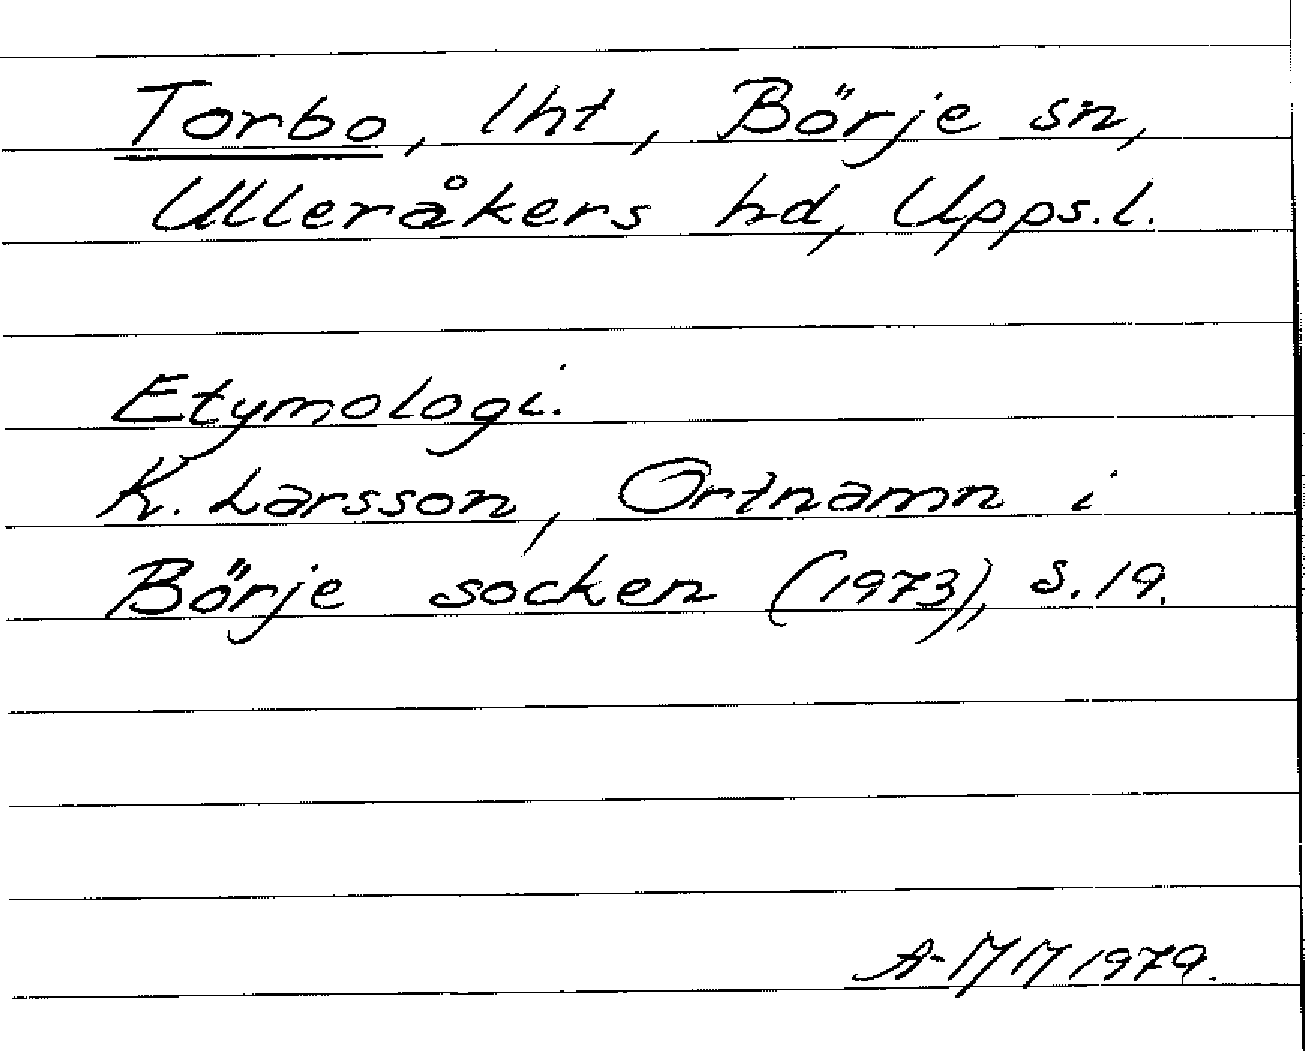 Torbo, lht, Börje sn,
Ulleråkers hd, Upps.l.
Etymologi.
K. Larsson, Ortnamn i
Börje socken (1973), s. 19.
A-MM 1979.